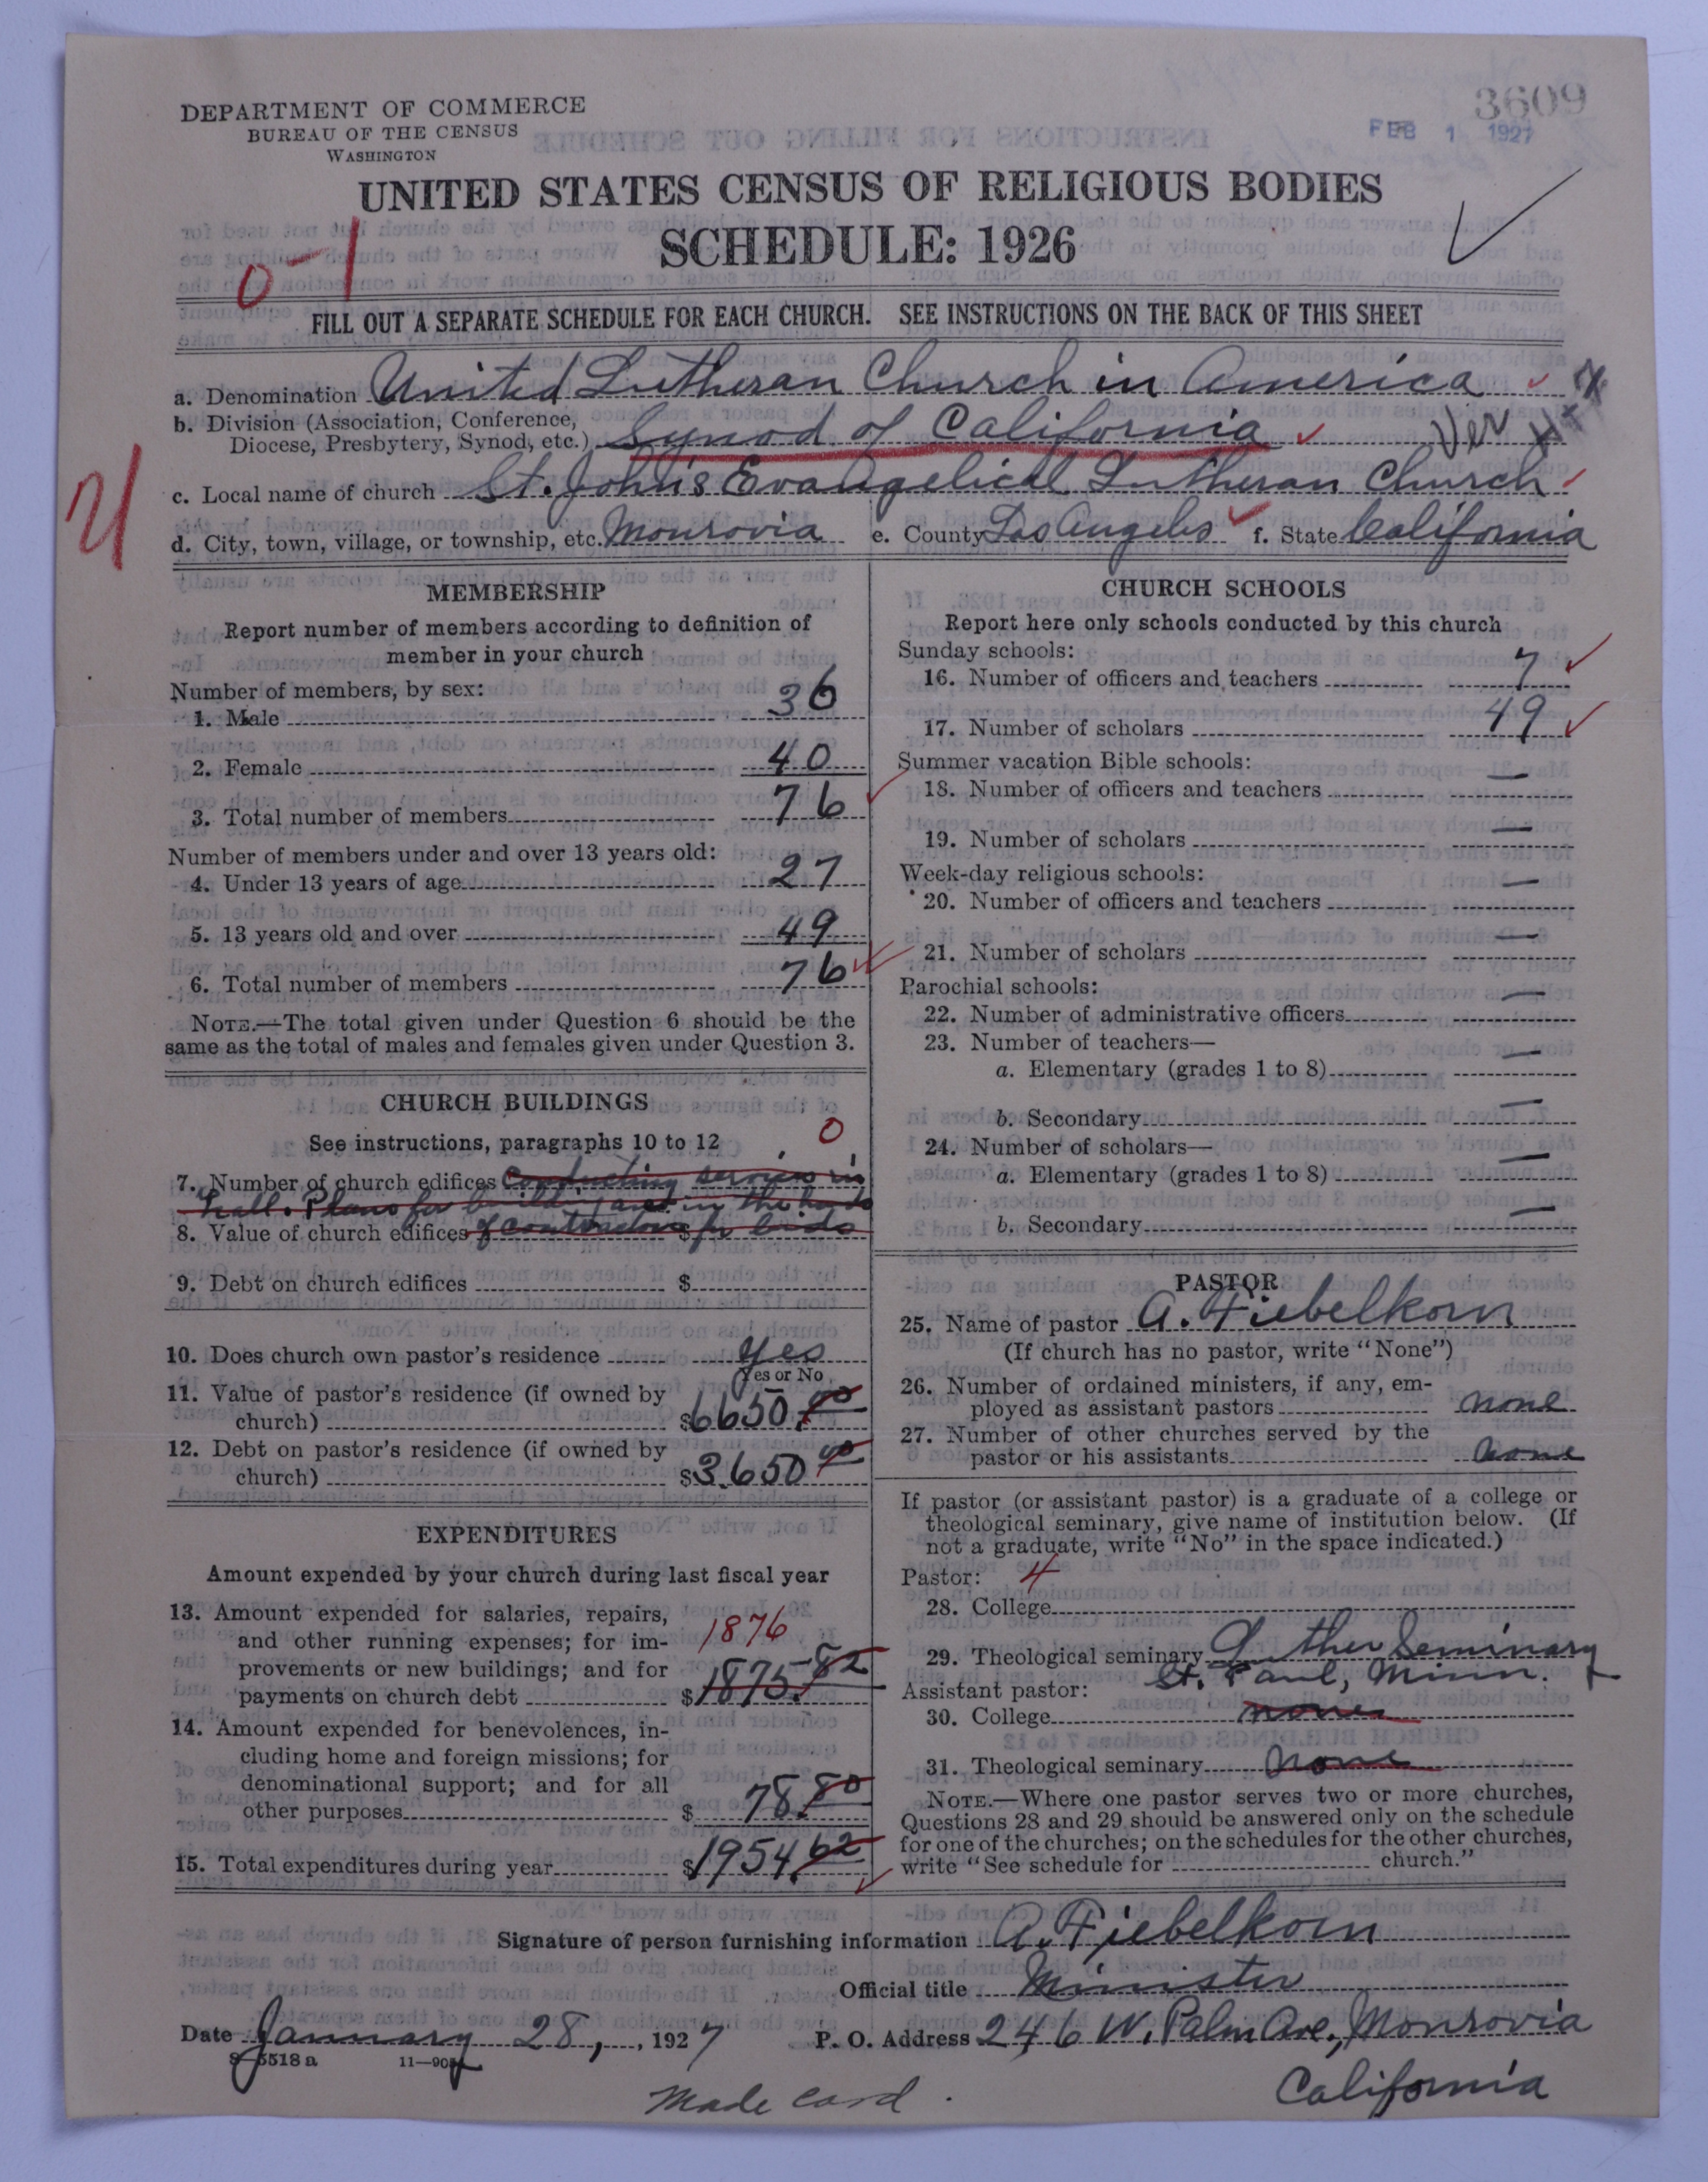 DEPARTMENT OF COMMERCE
BUREAU OF THE CENSUS
WASHINGTON
3609
FEB 1 1927
UNITED STATES CENSUS OF RELIGIOUS BODIES
SCHEDULE: 1926
0-1
FILL OUT A SEPARATE SCHEDULE FOR EACH CHURCH. SEE INSTRUCTIONS ON THE BACK OF THIS SHEET
a. Denomination United Lutheran Church in America
b. Division (Association, Conference,
Diocese, Presbytery, Synod, etc.) Synod of California
Ver
c. Local name of church St. John's Evangelical Lutheran Church
d. City, town, village, or township, etc. Monrovia e. County Los Angeles f. State California
MEMBERSHIP
Report number of members according to definition of
member in your church
Number of members, by sex:
1. Male 36
2. Female 40
3. Total number of members 76
Number of members under and over 13 years old:
4. Under 13 years of age 27
5. 13 years old and over 49
6. Total number of members 76
NOTE.—The total given under Question 6 should be the
same as the total of males and females given under Question 3.
CHURCH BUILDINGS
See instructions, paragraphs 10 to 12
0
7. Number of church edifices Conducting services in
hall. Plans for building are in the hands
8. Value of church edifices of contractors $ for bids
9. Debt on church edifices $
10. Does church own pastor's residence yes
Yes or No
11. Value of pastor's residence (if owned by
church) $6650.00
12. Debt on pastor's residence (if owned by
church) $3650 00
EXPENDITURES
Amount expended by your church during last fiscal year
13. Amount expended for salaries, repairs,
and other running expenses; for im- 1876
provements or new buildings; and for
payments on church debt $1875.82
14. Amount expended for benevolences, in-
cluding home and foreign missions; for
denominational support; and for all
other purposes $ 78.80
15. Total expenditures during year $1954.62
CHURCH SCHOOLS
Report here only schools conducted by this church
Sunday schools:
16. Number of officers and teachers 7
17. Number of scholars 49
Summer vacation Bible schools:
18. Number of officers and teachers —
19. Number of scholars —
Week-day religious schools:
20. Number of officers and teachers —
21. Number of scholars —
Parochial schools:
22. Number of administrative officers —
23. Number of teachers—
a. Elementary (grades 1 to 8) —
b. Secondary —
24. Number of scholars—
a. Elementary (grades 1 to 8) —
b. Secondary —
PASTOR
25. Name of pastor A. Fiebelkorn
(If church has no pastor, write "None")
26. Number of ordained ministers, if any, em-
ployed as assistant pastors none
27. Number of other churches served by the
pastor or his assistants none
If pastor (or assistant pastor) is a graduate of a college or
theological seminary, give name of institution below. (If
not a graduate, write "No" in the space indicated.)
Pastor: 4
28. College
29. Theological seminary Luther Seminary
St. Paul, Minn.
Assistant pastor:
30. College none
31. Theological seminary none
NOTE.—Where one pastor serves two or more churches,
Questions 28 and 29 should be answered only on the schedule
for one of the churches; on the schedules for the other churches,
write "See schedule for church."
Signature of person furnishing information A. Fiebelkorn
Official title Minister
Date January 28, 1927 P. O. Address 246 W. Palm Ave., Monrovia
California
8—5518 a
Made card.